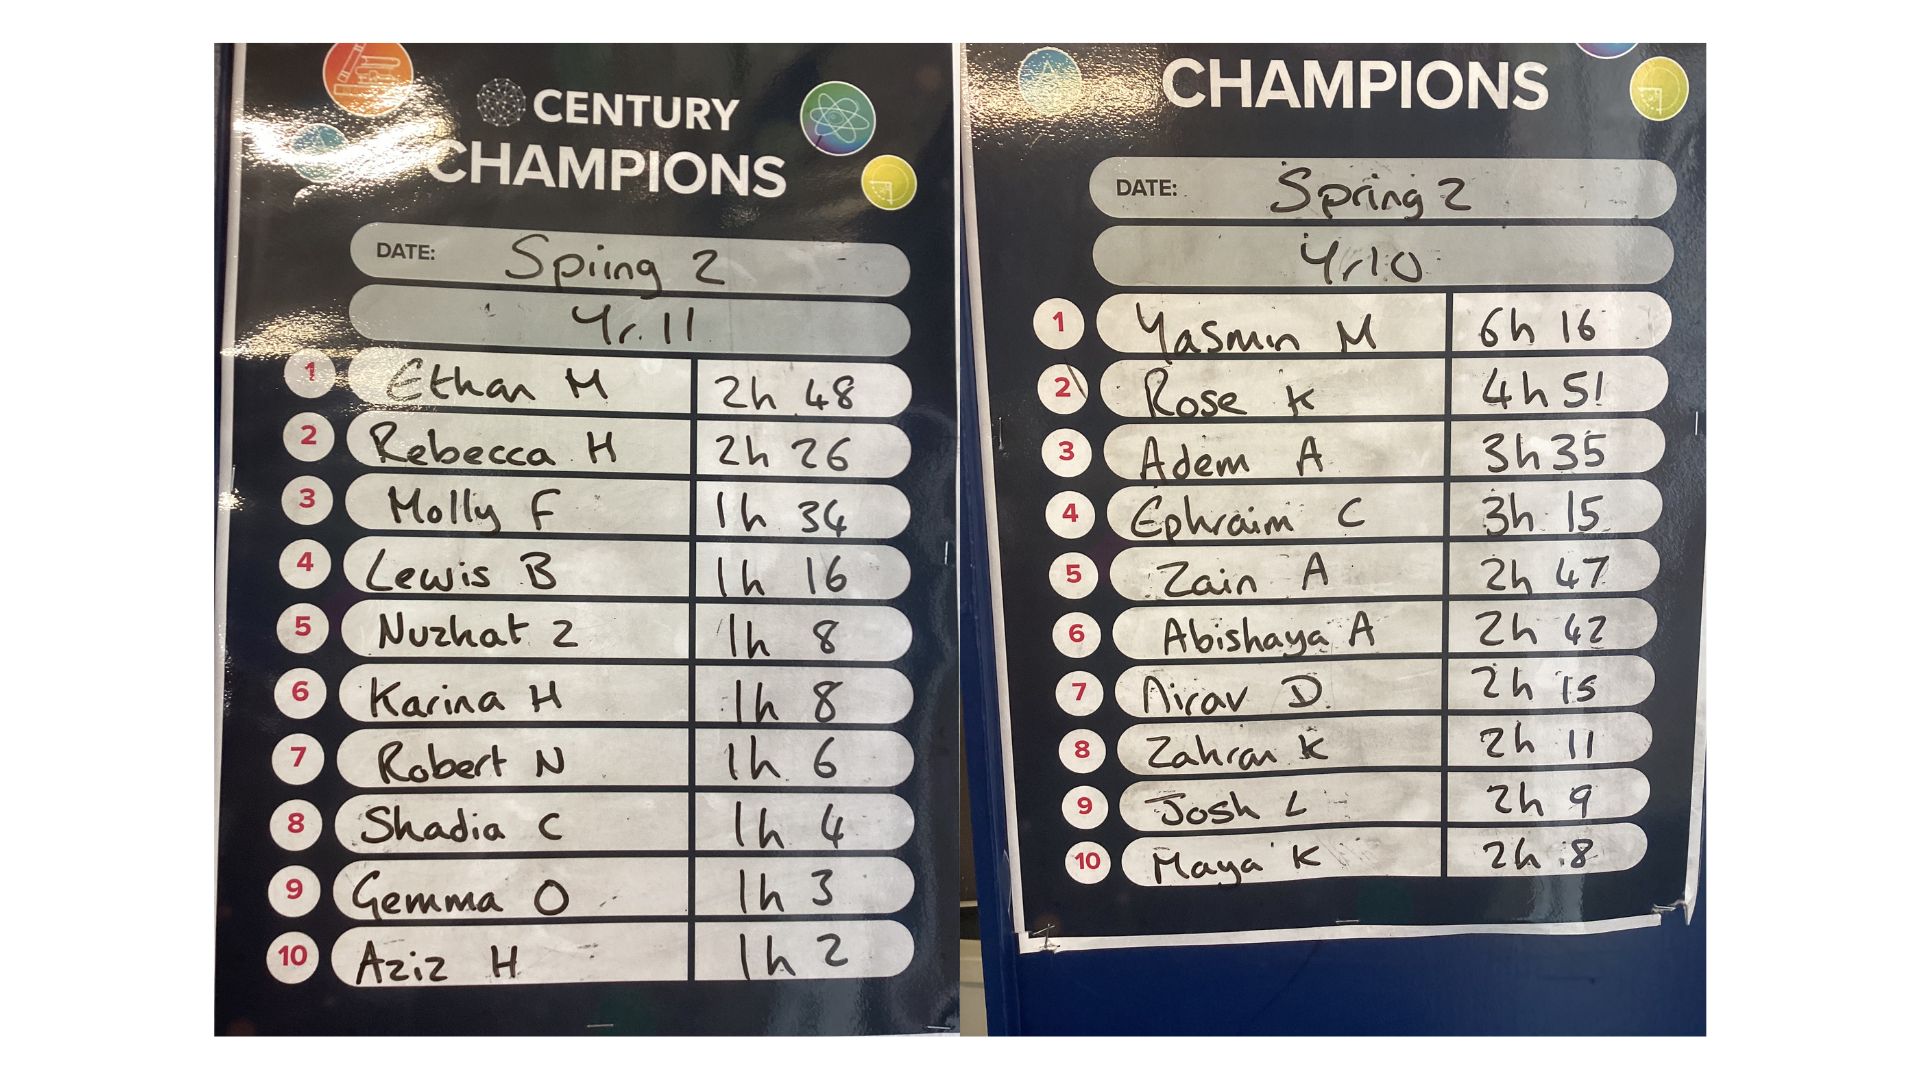 CENTURY
CHAMPIONS
DATE: Spring 2
Yr. 11
1 Ethan M 2h 48
2 Rebecca H 2h 26
3 Molly F 1h 34
4 Lewis B 1h 16
5 Nuzhat Z 1h 8
6 Karina H 1h 8
7 Robert N 1h 6
8 Shadia C 1h 4
9 Gemma O 1h 3
10 Aziz H 1h 2
CHAMPIONS
DATE: Spring 2
Yr10
1 Yasmin M 6h 16
2 Rose K 4h 51
3 Adem A 3h 35
4 Ephraim C 3h 15
5 Zain A 2h 47
6 Abishaya A 2h 42
7 Nirav D 2h 15
8 Zahran K 2h 11
9 Josh L 2h 9
10 Maya K 2h 8